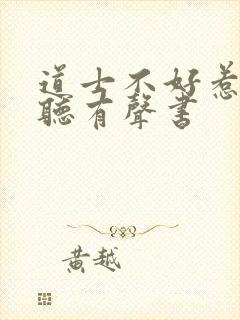 道士不好惹
聽有聲書
黃越